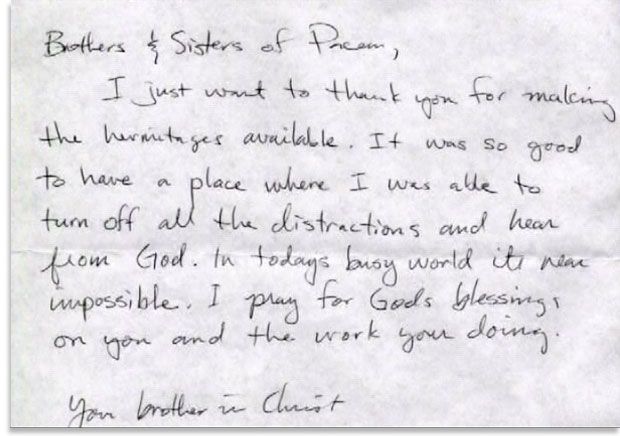 Brothers & Sisters of Pacem,
I just want to thank you for making
the hermitages available. It was so good
to have a place where I was able to
turn off all the distractions and hear
from God. In todays busy world its near
impossible. I pray for Gods blessings
on you and the work your doing.
Your brother in Christ